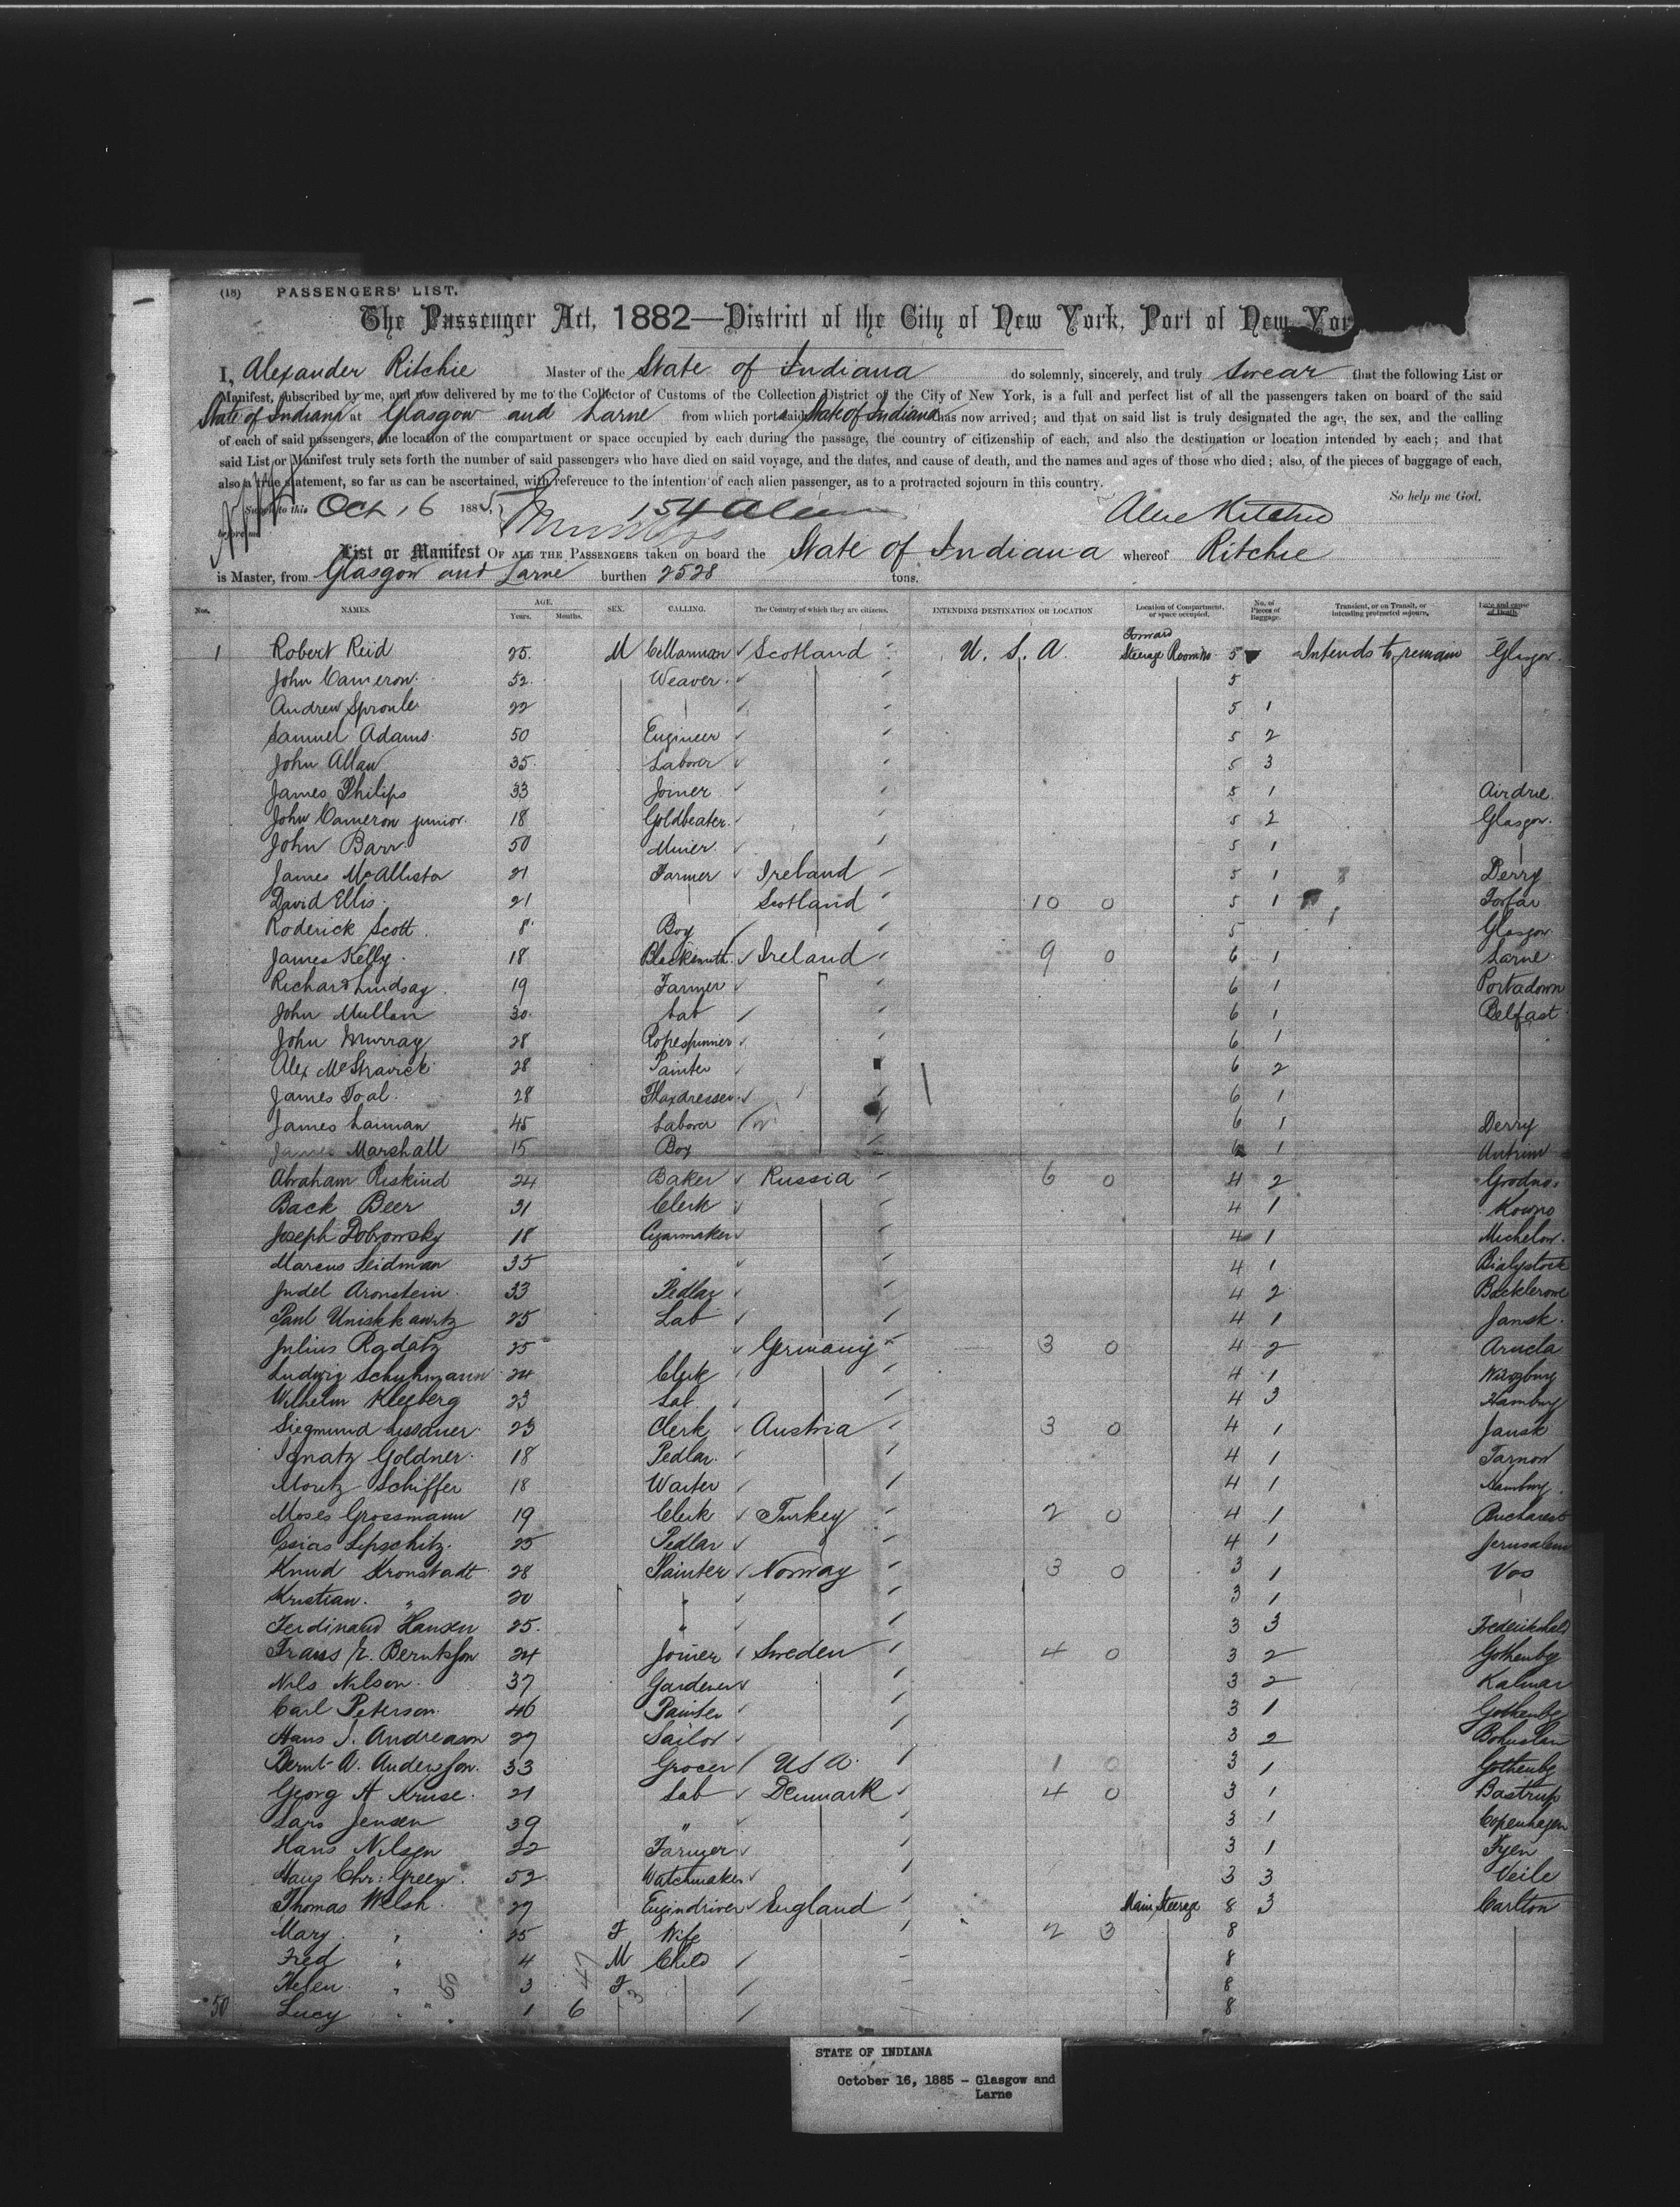 (18) PASSENGERS' LIST.
The Passenger Act, 1882—District of the City of New York, Port of New Yor
I, Alexander Ritchie Master of the State of Indiana do solemnly, sincerely, and truly swear that the following List or
Manifest, subscribed by me, and now delivered by me to the Collector of Customs of the Collection District of the City of New York, is a full and perfect list of all the passengers taken on board of the said
State of Indiana at Glasgow and Larne from which port said State of Indiana has now arrived; and that on said list is truly designated the age, the sex, and the calling
of each of said passengers, the location of the compartment or space occupied by each during the passage, the country of citizenship of each, and also the destination or location intended by each; and that
said List or Manifest truly sets forth the number of said passengers who have died on said voyage, and the dates, and cause of death, and the names and ages of those who died; also, of the pieces of baggage of each,
also a true statement, so far as can be ascertained, with reference to the intention of each alien passenger, as to a protracted sojourn in this country.
So help me God.
to this Oct 16 1885, 154 Alien Alex Ritchie
before me
List or Manifest OF ALL THE PASSENGERS taken on board the State of Indiana whereof Ritchie
is Master, from Glasgow and Larne burthen 2528 tons.
Nos. NAMES. AGE. Years. Months. SEX. CALLING. The Country of which they are citizens. INTENDING DESTINATION OR LOCATION Location of Compartment, or space occupied. No. of Pieces of Baggage. Transient, or on Transit, or intending protracted sojourn. Date and cause of Death.
1 Robert Reid 25 M Cellarman Scotland U. S. A Forward Steerage Room No 5 Intends to remain Glasgow
John Cameron 52 Weaver 5
Andrew Sproule 22 5 1
Samuel Adams 50 Engineer 5 2
John Allan 35 Laborer 5 3
James Philips 33 Joiner 5 1 Airdrie
John Cameron junior 18 Goldbeater 5 2 Glasgow
John Barr 50 Miner 5 1
James McAllister 21 Farmer Ireland 5 1 Derry
David Ellis 21 Scotland 10 0 5 1 Forfar
Roderick Scott 8 Boy 5 Glasgow
James Kelly 18 Blacksmith Ireland 9 0 6 1 Larne
Richard Lindsay 19 Farmer 6 1 Portadown
John Mullan 30 Lab 6 1 Belfast
John Murray 28 Ropespinner 6 1
Alex McStravick 28 Painter 6 2
James Toal 28 Flaxdresser 6 1
James Laiman 45 Laborer 6 1 Derry
James Marshall 15 Boy 6 1 Antrim
Abraham Riskind 24 Baker Russia 6 0 4 2 Grodno
Back Beer 31 Clerk 4 1 Kowno
Joseph Dobrowsky 18 Cigarmaker 4 1 Michelow
Marcus Seidman 35 4 1 Bialystock
Judel Aronstein 33 Pedlar 4 2
Paul 25 Lab 4 1 Jansk
Julius Radatz 25 Germany 3 0 4 2
Ludwig Schuhmann 24 Clerk 4 1 Wurzburg
Wilhelm Kleeberg 23 Lab 4 3 Hamburg
Siegmund 23 Clerk Austria 3 0 4 1 Jansk
Ignatz Goldner 18 Pedlar 4 1 Tarnow
Moritz Schiffer 18 Waiter 4 1 Hamburg
Moses Grossmann 19 Clerk Turkey 2 0 4 1 Bucharest
Ossias Lipschitz 25 Pedlar 4 1 Jerusalem
Knud Kronstadt 28 Painter Norway 3 0 3 1 Vos
Kristian " 20 " 3 1
Ferdinand Hansen 25 " 3 3 Frederikshald
Frans E. Berntsson 24 Joiner Sweden 4 0 3 2 Gothenbg
Nils Nilson 37 Gardener 3 2 Kalmar
Carl Peterson 46 Painter 3 1 Gothenbg
Hans J. Andreason 27 Sailor 3 2 Bohuslan
Bernt A. Andersson 33 Grocer U S A 1 0 3 1 Gothenbg
Georg H Kruse 21 Lab Denmark 4 0 3 1 Bastrup
Lars Jensen 39 " 3 1 Copenhagen
Hans Nilsen 22 Farmer 3 1 Fyen
Hans Chr: Green 52 Watchmaker 3 3 Veile
Thomas Welsh 27 Engindriver England Main Steerage 8 3 Carlton
Mary " 25 F Wife 2 3 8
Fred " 4 M Child 8
Helen " 3 F 8
50 Lucy " 1 6 8
50 47 3
STATE OF INDIANA
October 16, 1885 - Glasgow and
Larne